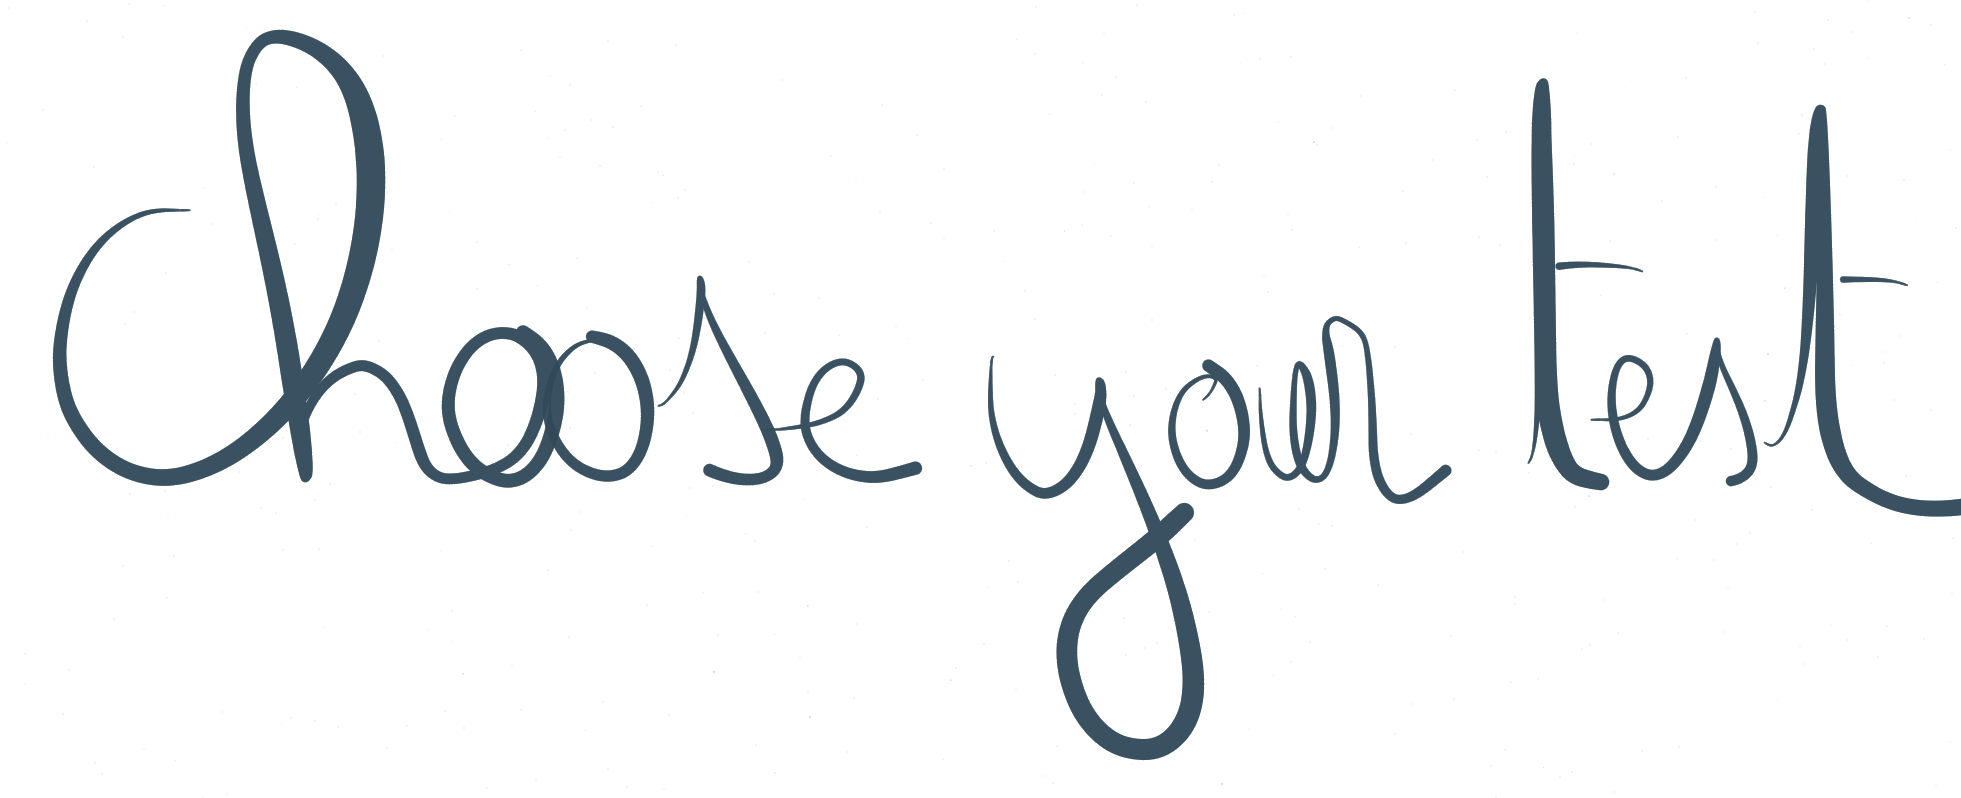 choose your test